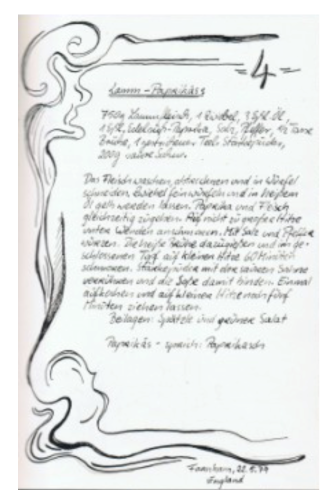 - 4 -
Lamm-Paprikás
750g Lammfleisch, 1 Zwiebel, 3 Eßl. Öl,
1 Eßl. Edelsüß-Paprika, Salz, Pfeffer, 1/2 Tasse
Brühe, 1 gestrichener Teel. Stärkepuder,
200g saure Sahne.
Das Fleisch waschen, abtrocknen und in Würfel
schneiden. Zwiebel fein würfeln und in heißem
Öl gelb werden lassen. Paprika und Fleisch
gleichzeitig zugeben. Auf nicht zu großer Hitze
unter Wenden anschmoren. Mit Salz und Pfeffer
würzen. Die heiße Brühe dazugießen und im ge-
schlossenen Topf auf kleiner Hitze 60 Minuten
schmoren. Stärkepuder mit der sauren Sahne
verrühren und die Soße damit binden. Einmal
aufkochen und auf kleiner Hitze noch fünf
Minuten ziehen lassen.
Beilagen: Spätzle und grüner Salat
Paprikás - sprich: Paprikasch
Farnham, 22.
England